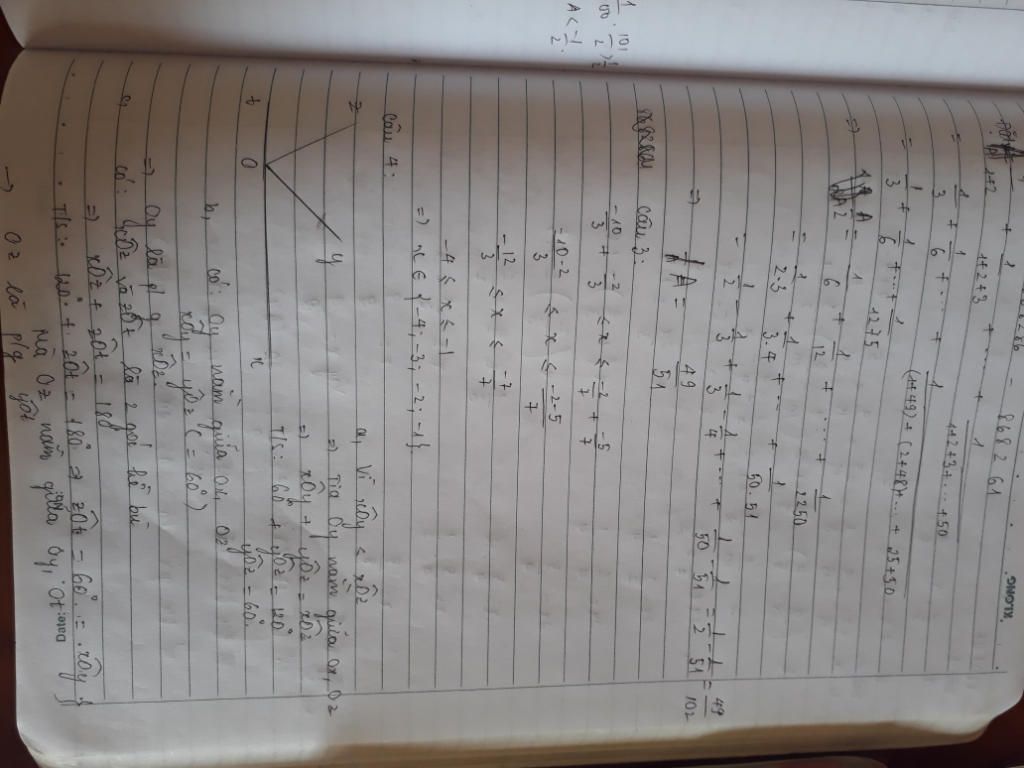 1/50 . 101/2
A < -1/2.
868261
1/1+2 + 1/1+2+3 + ... + 1/1+2+3+...+50
= 1/3 + 1/6 + ... + 1/(1+49)+(2+48)+...+25+50
= 1/3 + 1/6 + ... + 1/1275
=> A/2 = 1/6 + 1/12 + ... + 1/2550
= 1/2.3 + 1/3.4 + ... + 1/50.51
= 1/2 - 1/3 + 1/3 - 1/4 + ... + 1/50 - 1/51 = 1/2 - 1/51 = 49/102
=> A = 49/51
Câu 3:
-10/3 + -2/3 ≤ x ≤ -2/7 + -5/7
-10-2/3 ≤ x ≤ -2-5/7
-12/3 ≤ x ≤ -7/7
-4 ≤ x ≤ -1
=> x ∈ {-4; 3; -2; -1}
Câu 4:
z y t O x
a, Vì xOy < xOz
=> Tia Oy nằm giữa Ox, Oz
=> xOy + yOz = xOz
T/s: 60° + yOz = 120°
yOz = 60°
b, Có: Oy nằm giữa Ox, Oz
xOy = yOz (= 60°)
=> Oy là p/g xOz
c, Có: xOz và zOt là 2 góc kề bù
=> xOz + zOt = 180
T/s: 120° + zOt = 180° => zOt = 60° = xOy
Mà Oz nằm giữa Oy, Ot
→ Oz là p/g yOt